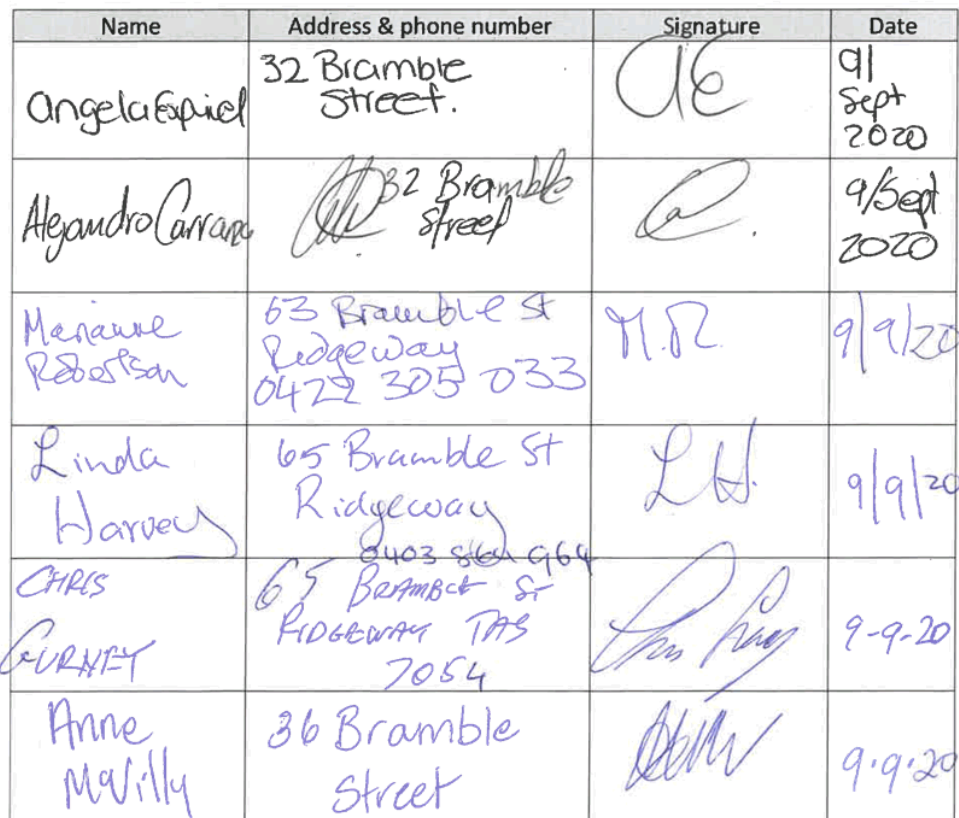 Name Address & phone number Signature Date
32 Bramble
Street.
Angela
AE
9/
Sept
2020
Alejandro
32 Bramble
Street
9/Sept
2020
Marianne
Robertson
63 Bramble St
Ridgeway
0422 305 033
M.R.
9/9/20
Linda
Harvey
65 Bramble St
Ridgeway
0403
L H.
9/9/20
CHRIS
GURNEY
65 BRAMBLE ST
RIDGEWAY TAS
7054
9-9-20
Anne
McVilly
36 Bramble
Street
9.9.20